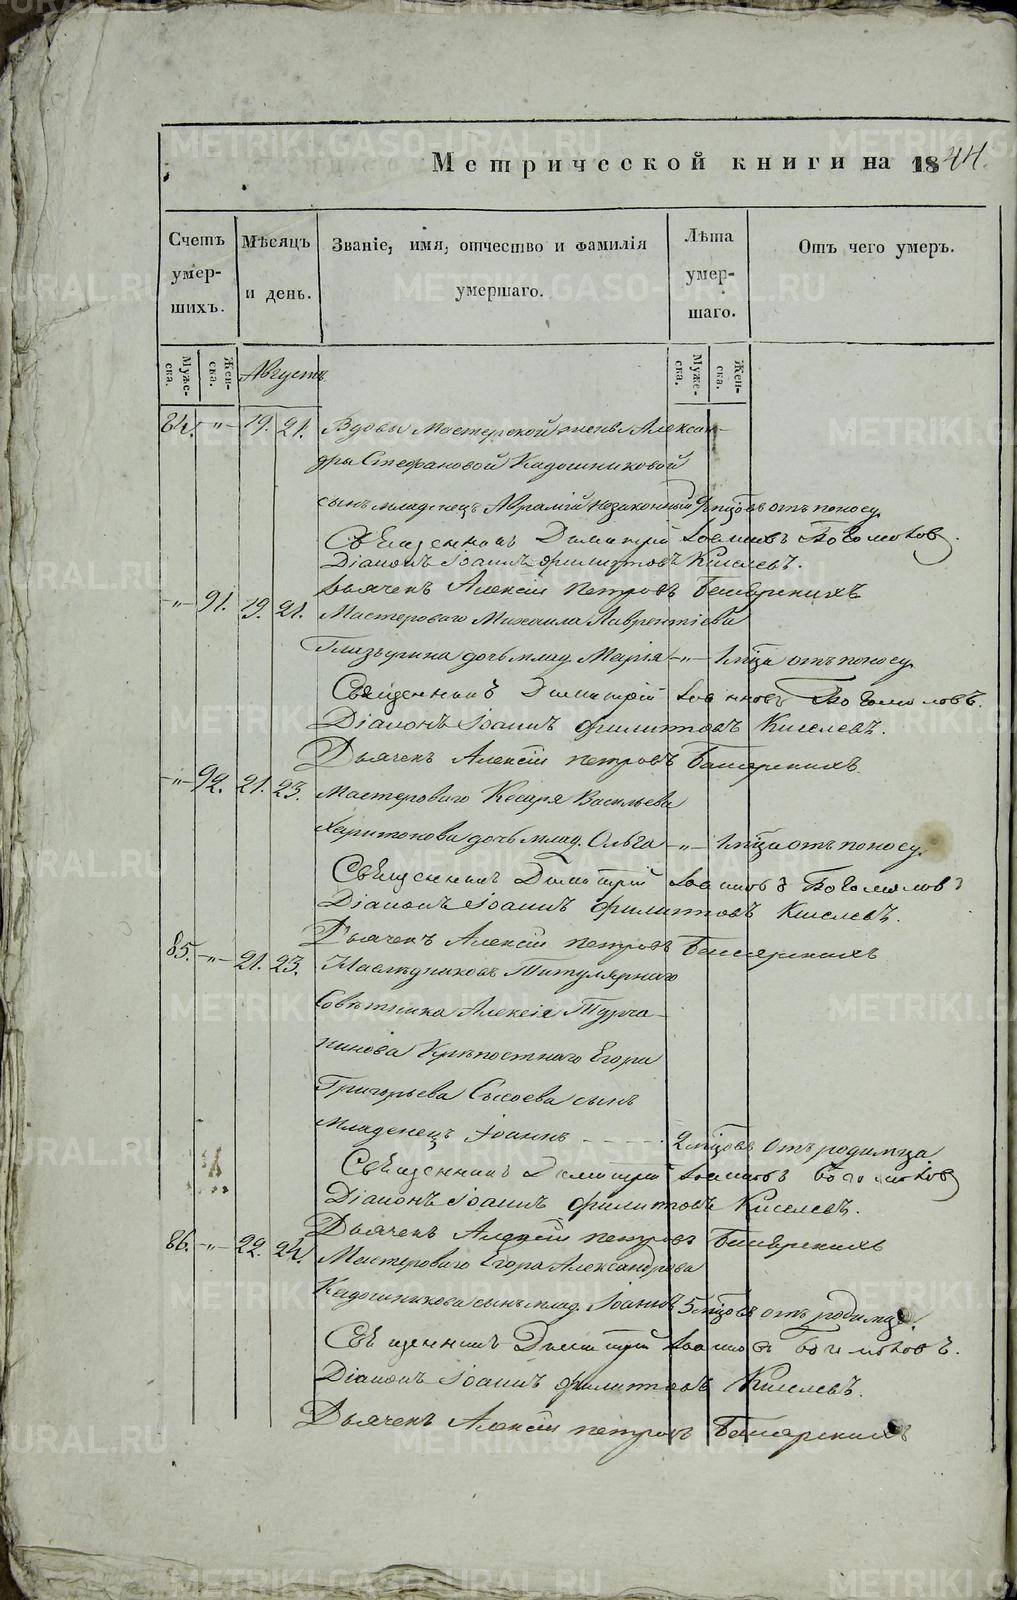 Метрической книги на 1844.
Счетъ умер-шихъ.
Мѣсяцъ и день.
Званіе, имя, отчество и фамилія умершаго.
Лѣта умер-шаго.
Отъ чего умеръ.
Муже-ска.
Жен-ска.
Августъ
Муже-ска.
Жен-ска.
84. -„- 19. 21. Вдовы Мастерской жены Алексан-
дры Стефановой Кадошниковой
сынъ младенецъ Авраамій незаконный мцовъ отъ поносу
Священникъ Димитрій Іоанновъ Богомоловъ.
Діаконъ Іоаннъ Филипповъ Киселевъ.
Дьячекъ Алексій Петровъ
-„- 91. 19. 21. Мастероваго Михаила Лаврентіева
Глазырина дочь млад. Марія -„- 1 мца отъ поносу
Священникъ Димитрій Іоанновъ Богомоловъ.
Діаконъ Іоаннъ Филипповъ Киселевъ.
Дьячекъ Алексій Петровъ
-„- 92. 21. 23. Мастероваго Кесаря Васильева
Харитонова дочь млад. Ольга -„- 1 мца отъ поносу.
Священникъ Димитрій Іоанновъ Богомоловъ
Діаконъ Іоаннъ Филипповъ Киселевъ.
Дьячекъ Алексій Петровъ
85. -„- 21. 23. Наслѣдниковъ Титулярнаго
Совѣтника Алексія Турча-
нинова Крѣпостнаго Егора
Григорьева Сысоева сынъ
младенецъ Іоаннъ - - - - 2 мцовъ отъ родимца
Священникъ Димитрій Іоанновъ Богомоловъ
Діаконъ Іоаннъ Филипповъ Киселевъ.
Дьячекъ Алексій Петровъ
86. -„- 22. 24. Мастероваго Егора Александрова
Кадошникова сынъ млад. Іоаннъ 5 мцовъ отъ родимца.
Священникъ Димитрій Іоанновъ Богомоловъ.
Діаконъ Іоаннъ Филипповъ Киселевъ.
Дьячекъ Алексій Петровъ
METRIKI.GASO-URAL.RU